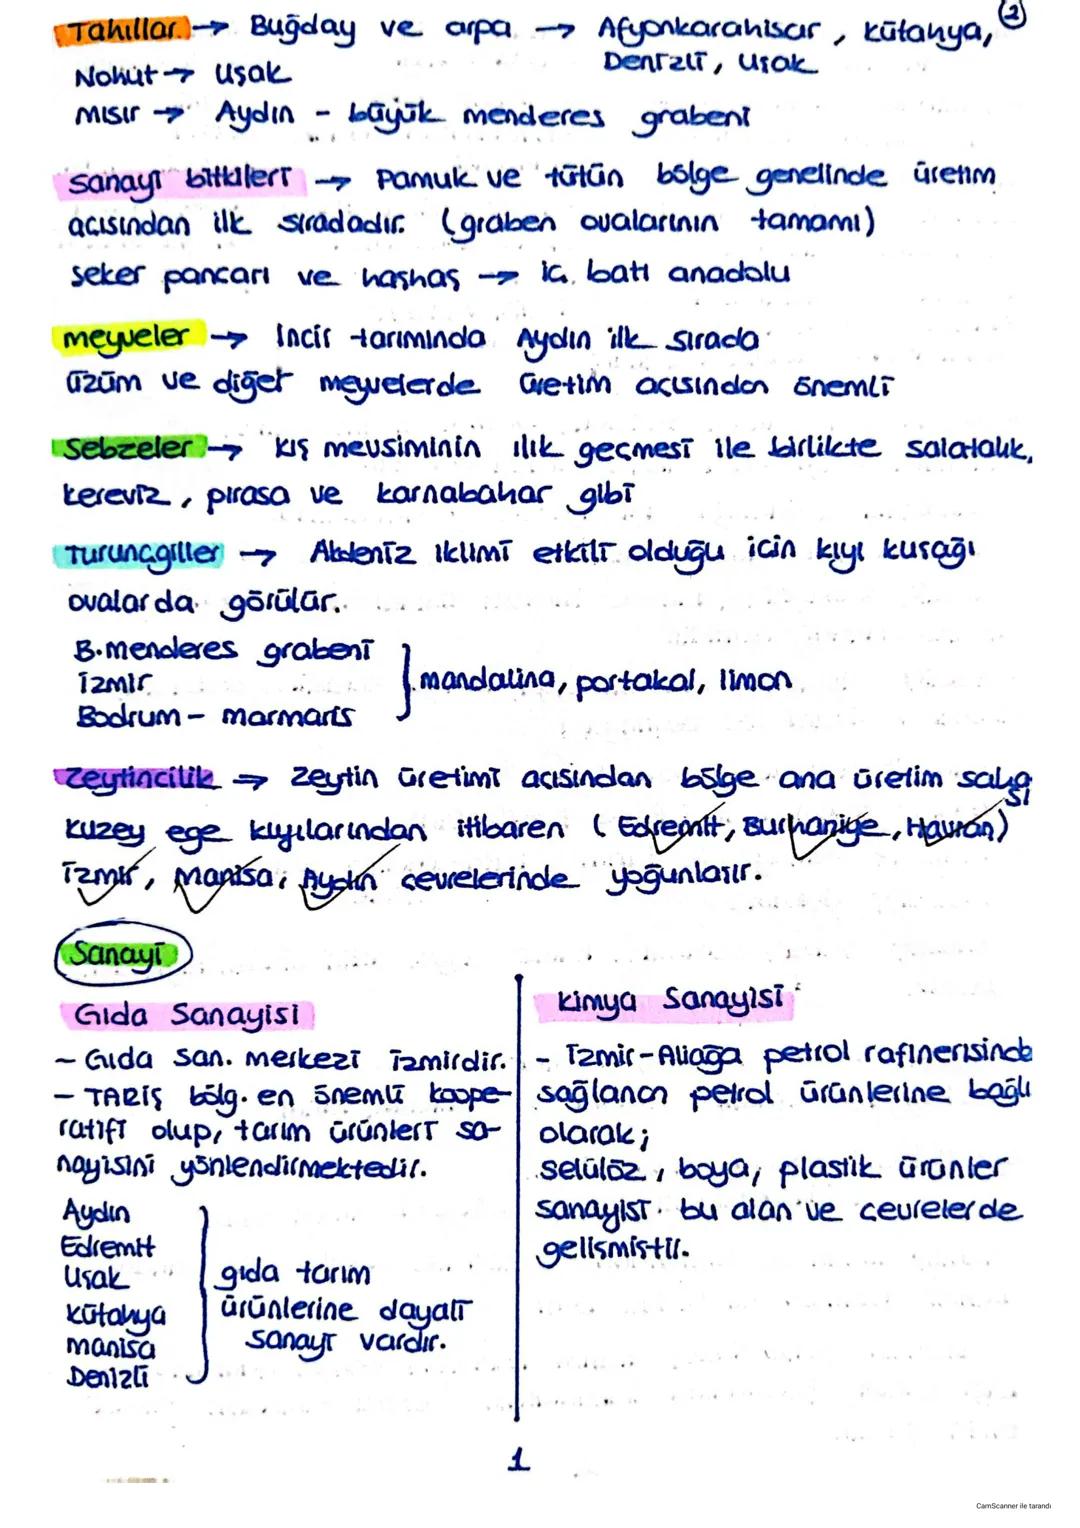 2
Tahıllar → Buğday ve arpa → Afyonkarahisar, Kütahya,
Denizli, Uşak
Nohut → Uşak
mısır → Aydın - büyük menderes grabeni
Sanayi bitkileri → Pamuk ve tütün bölge genelinde üretim
açısından ilk sıradadır. (graben ovalarının tamamı)
şeker pancarı ve haşhaş → iç batı anadolu
meyveler → İncir tarımında Aydın ilk sırada
üzüm ve diğer meyvelerde üretim açısından önemli
Sebzeler → kış mevsiminin ılık geçmesi ile birlikte salatalık,
kereviz, pırasa ve karnabahar gibi
Turunçgiller → Akdeniz iklimi etkili olduğu için kıyı kuşağı
ovalarda görülür.
B.menderes grabeni
İzmir
Bodrum - marmaris
mandalina, portakal, limon
Zeytincilik → Zeytin üretimi açısından bölge ana üretim saha
sı
Kuzey ege kıyılarından itibaren (Edremit, Burhaniye, Havran)
İzmir, Manisa, Aydın çevrelerinde yoğunlaşır.
Sanayi
Gıda Sanayisi
- Gıda san. merkezi İzmirdir.
- TARİŞ bölg. en önemli koope-
ratifi olup, tarım ürünleri sa-
nayisini yönlendirmektedir.
Aydın
Edremit
Uşak
Kütahya
manisa
Denizli
gıda tarım
ürünlerine dayalı
sanayi vardır.
Kimya Sanayisi
- İzmir-Aliağa petrol rafinerisinde
sağlanan petrol ürünlerine bağlı
olarak;
selüloz, boya, plastik ürünler
sanayisi bu alan ve çevrelerde
gelişmiştir.
1
CamScanner ile tarandı